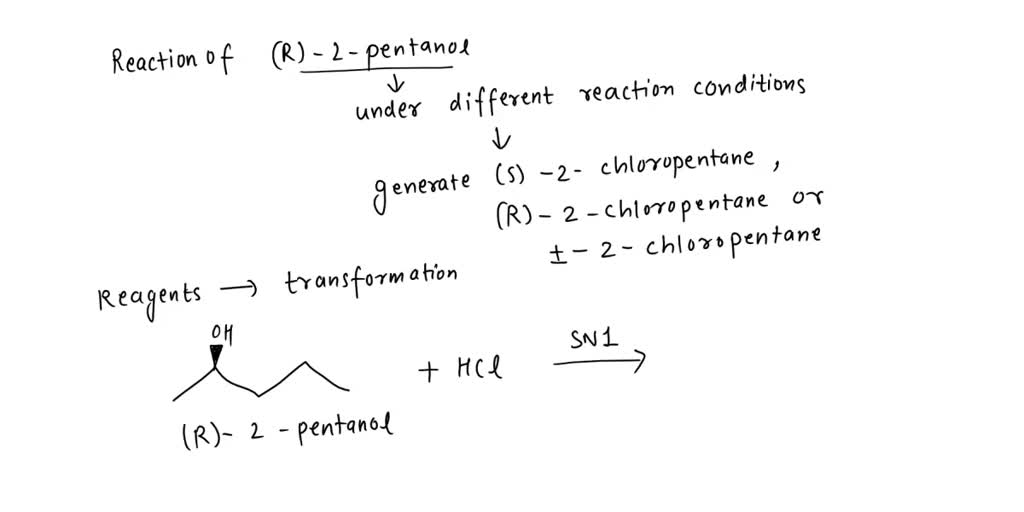 Reaction of (R)-2-pentanol
↓
under different reaction conditions
↓
generate (S)-2-chloropentane,
(R)-2-chloropentane or
±-2-chloropentane
Reagents → transformation
OH
+ HCl
SN1
(R)-2-pentanol